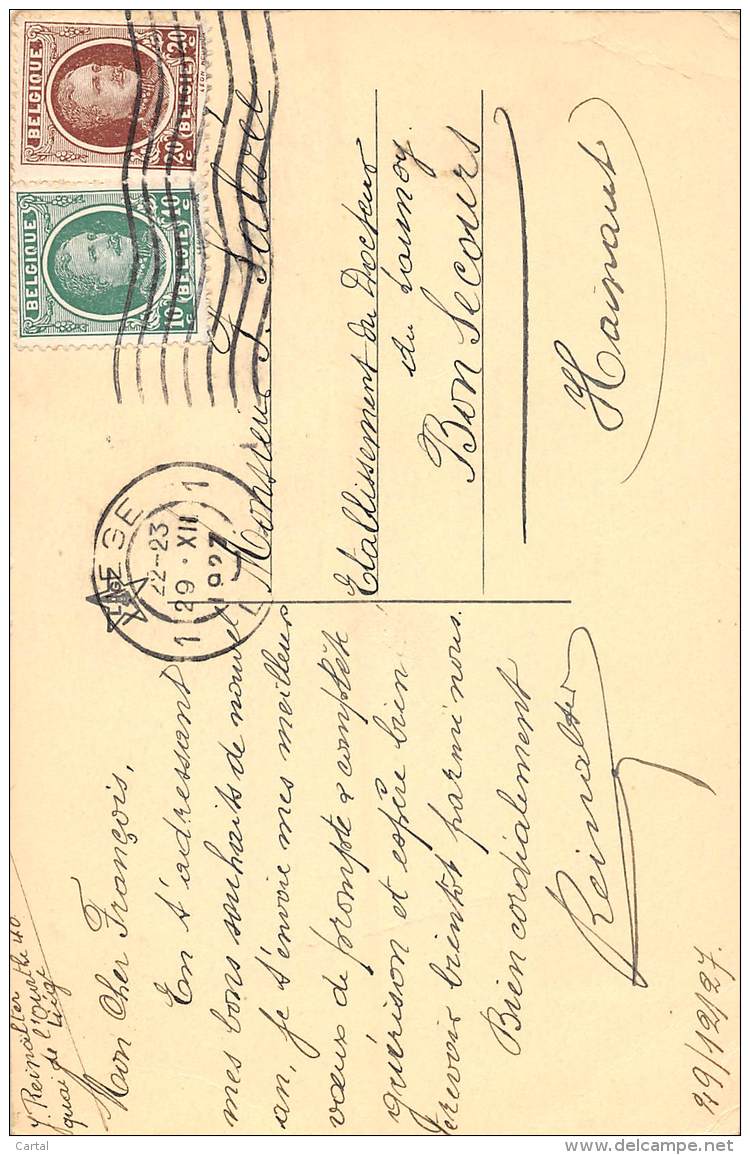 J. Reinalter
quai de l'Ourthe 40
Liège
Mon Cher François,
En t'adressant
mes bons souhaits de nouvel
an, je t'envoie mes meilleurs
vœux de prompte & complète
guérison et espère bien
te revoir bientôt parmi nous.
Bien cordialement
Reinalter
29/12/27.
LIEGE
1 1
22-23
29 · XII
1927
BELGIQUE
20 c 20 c
BELGIË
BELGIQUE
10 c 10 c
BELGIË
Monsieur F.
Etablissement du Docteur
du
Bon Secours
Hainaut
Cartal
www.delcampe.net